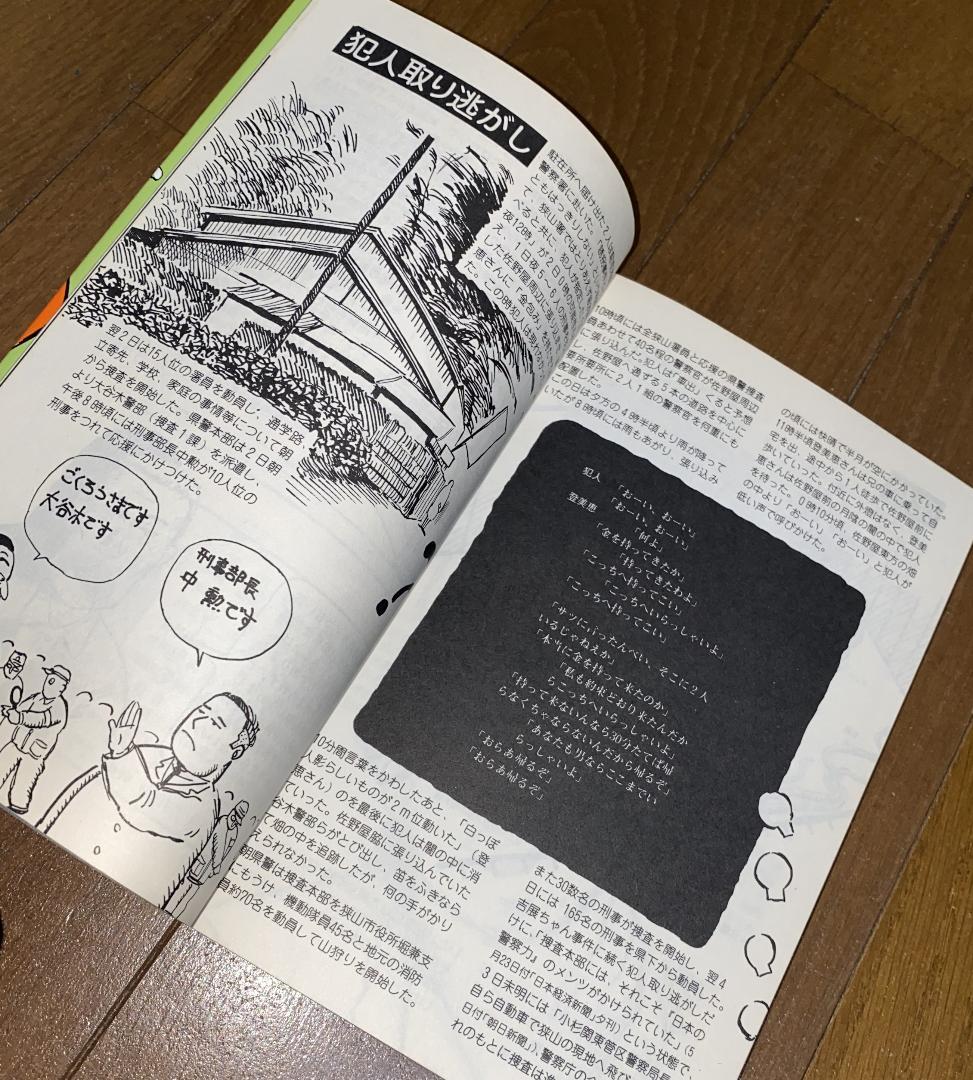 犯人取り逃がし
駐在所へ届け出た
警察署においても
ともはっきりしない
て、狭山署では
ると共に、犯人が指定
夜12時」が2日
え、1日夜5〜6人
した佐野屋周辺に張り込ま
恵さんに「金包み」
た。この時犯人は現
翌2日は15人位の署員を動員し、通学路
立寄先、学校、家庭の事情等について朝
から捜査を開始した。県警本部は2日朝
より大谷木警部（捜査1課）を派遣し
午後8時頃には刑事部長中勲が10人位の
刑事をつれて応援にかけつけた。
ごくろうさまです
大谷木です
刑事部長
中 勲です
10時頃には全狭山署員と応援の県警捜査
員あわせて40名程の警察官が佐野屋周辺
に張り込んだ。犯人は「車出」くると予想
し、佐野屋へ通ずる5本の道路を中心に
要所要所に2人1組の警察官を何重にも
配置した。
この日は夕方の4時半頃より雨が降って
いたが8時頃には雨もあがり、張り込み
の頃には快晴で半月が空にかかっていた。
11時半頃登美恵さんは兄の車に乗って自
宅を出、途中から1人徒歩で佐野屋前に
歩いていった。付近に外燈はなく、登美
恵さんは佐野屋前の月陰の闇の中で犯人
を待った。0時10分頃、佐野屋東方の畑
の中より「おーい」「おーい」と犯人が
低い声で呼びかけた。
犯人 「おーい、おーい」
「おーい、おーい」
登美恵 「何よ」
「金を持ってきたか」
「持ってきたわよ」
「こっちへ持ってこい」
「こっちへいらっしゃいよ」
「こっちへ持ってこい」
「サツに言ったんべい、そこに2人
いるじゃねえか」
「本当に金を持って来たのか」
「私も約束どおり来たんだか
らこっちへいらっしゃいよ」
「持って来ないんなら30分たてば帰
らなくちゃならないんだから帰るぞ」
「あなたも男ならここまでい
らっしゃいよ」
「おらあ帰るぞ」
「おらあ帰るぞ」
10分間言葉をかわしたあと、「白っぽ
人影らしいものが2m位動いた」（登
恵さん）のを最後に犯人は闇の中に消
ていった。佐野屋脇に張り込んでいた
谷木警部らがとび出し、笛をふきなら
て畑の中を追跡したが、何の手がかり
えられなかった。
朝県警は捜査本部を狭山市役所堀兼支
にもうけ、機動隊員45名と地元の消防
員約70名を動員して山狩りを開始した。
また30数名の刑事が捜査を開始し、翌4
日には165名の刑事を県下から動員した。
吉展ちゃん事件に続く犯人取り逃がしだ
けに、「捜査本部には、それこそ『日本の
警察力』のメンツがかけられていた」（5
月23日付「日本経済新聞」夕刊）という状態で、
3日未明には「小杉関東管区警察局長
自ら自動車で狭山の現地へ飛び
日付「朝日新聞」）、警察庁の
れのもとに捜査は